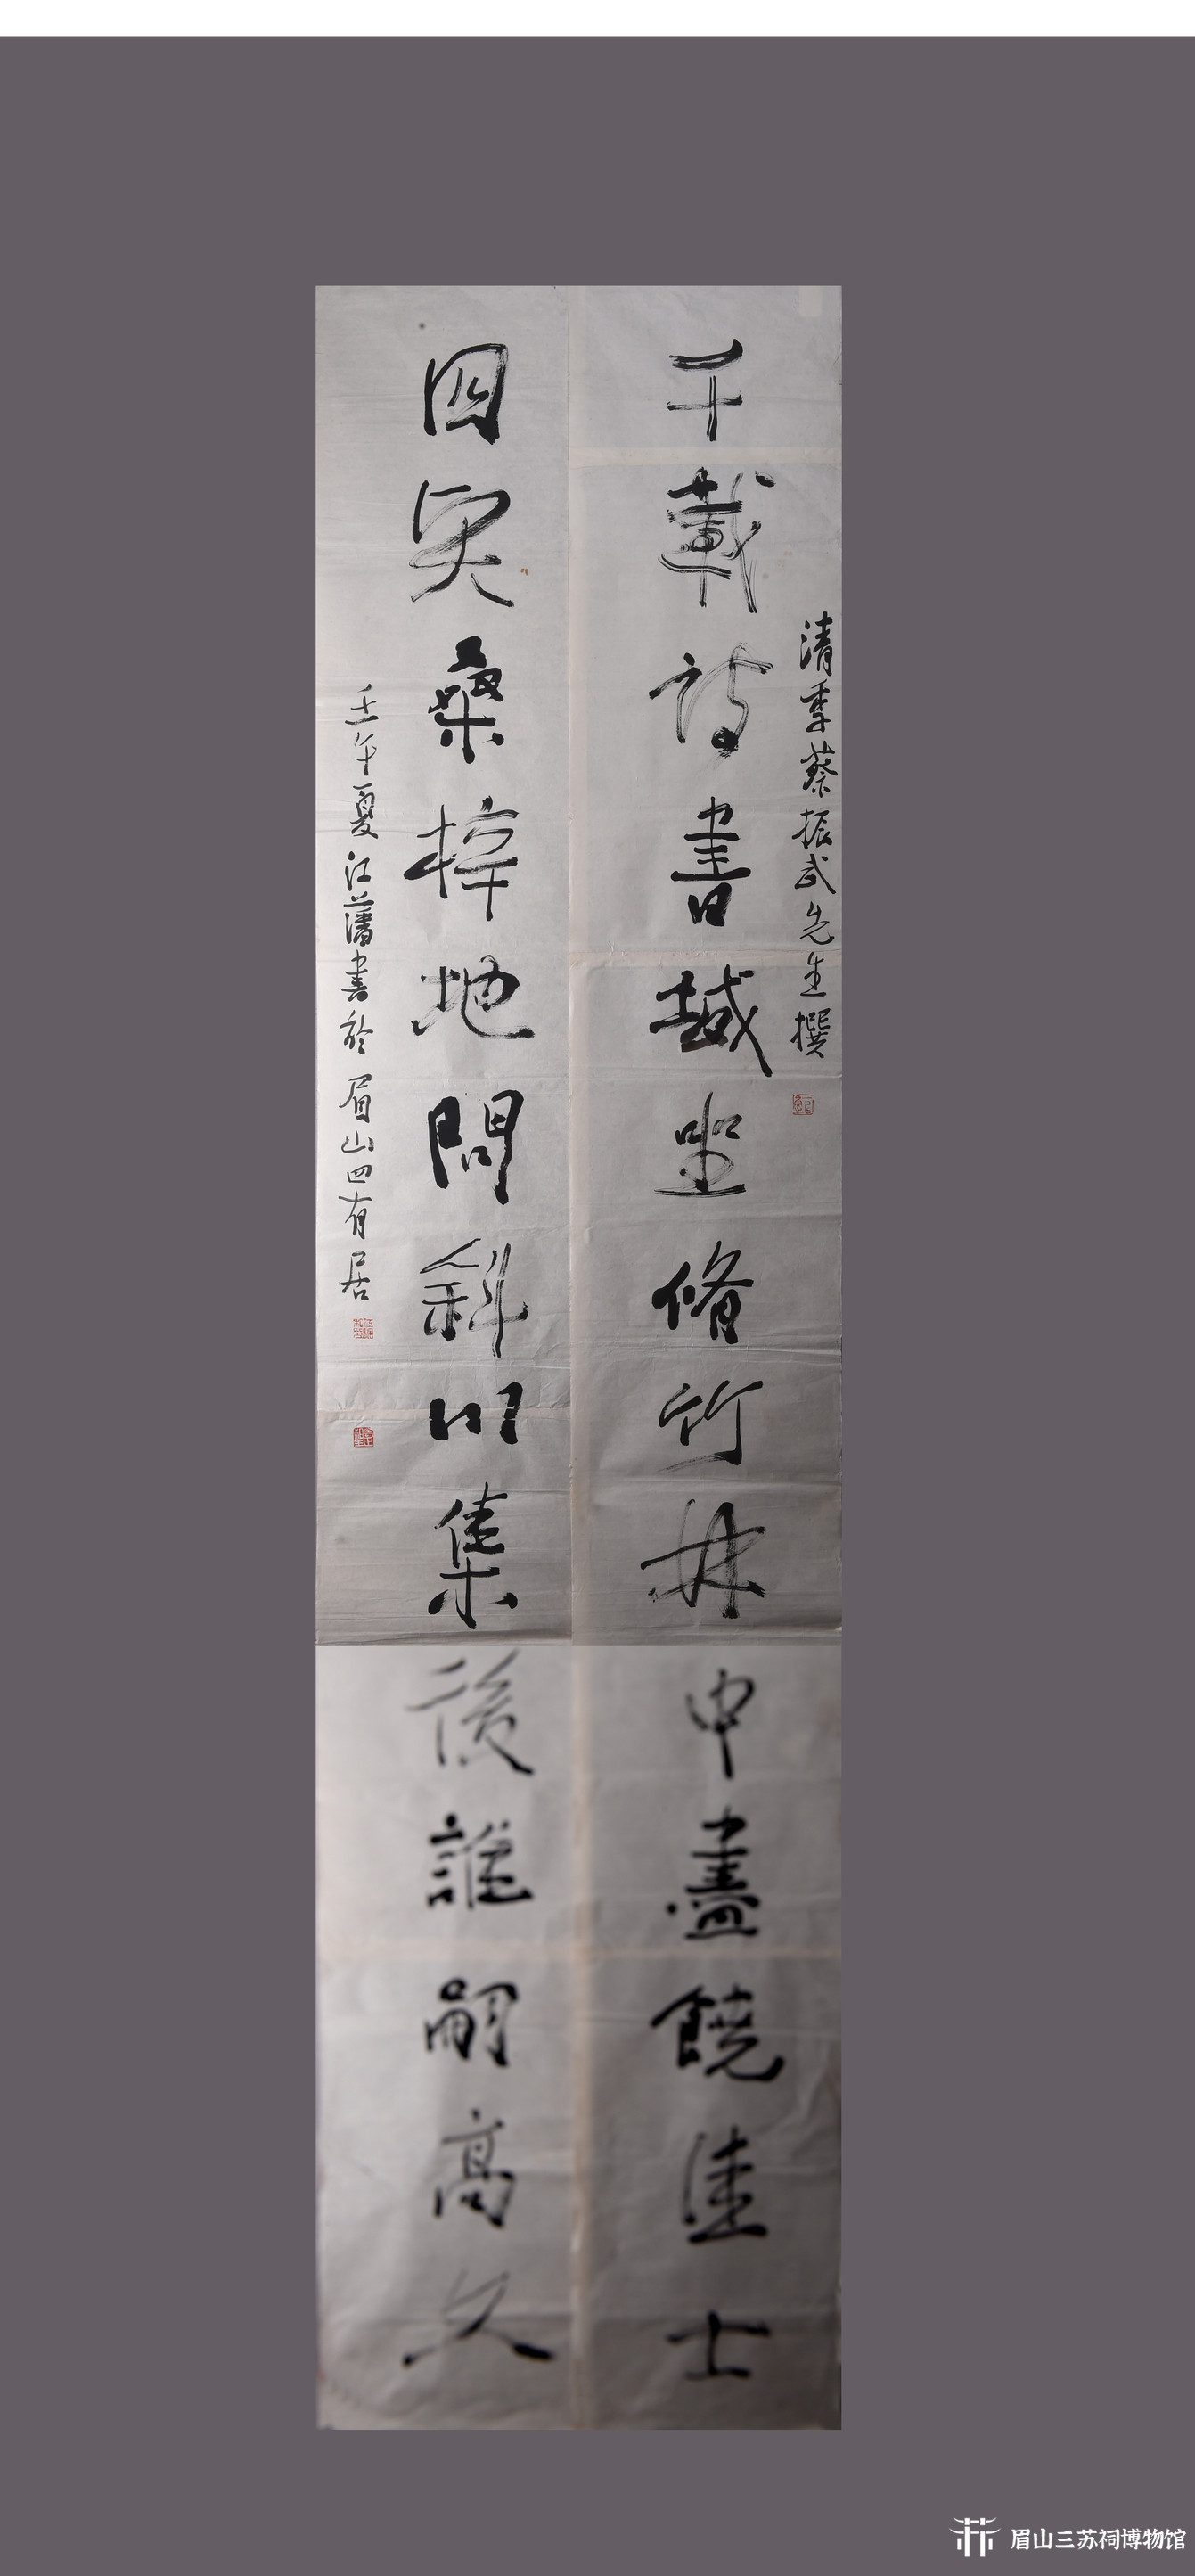 清季蔡振武先生撰
千載詩書城坐脩竹林中盡饒佳士
四賢桑梓地問斜川集後誰嗣高文
壬午夏江藩書於眉山四有居
眉山三苏祠博物馆